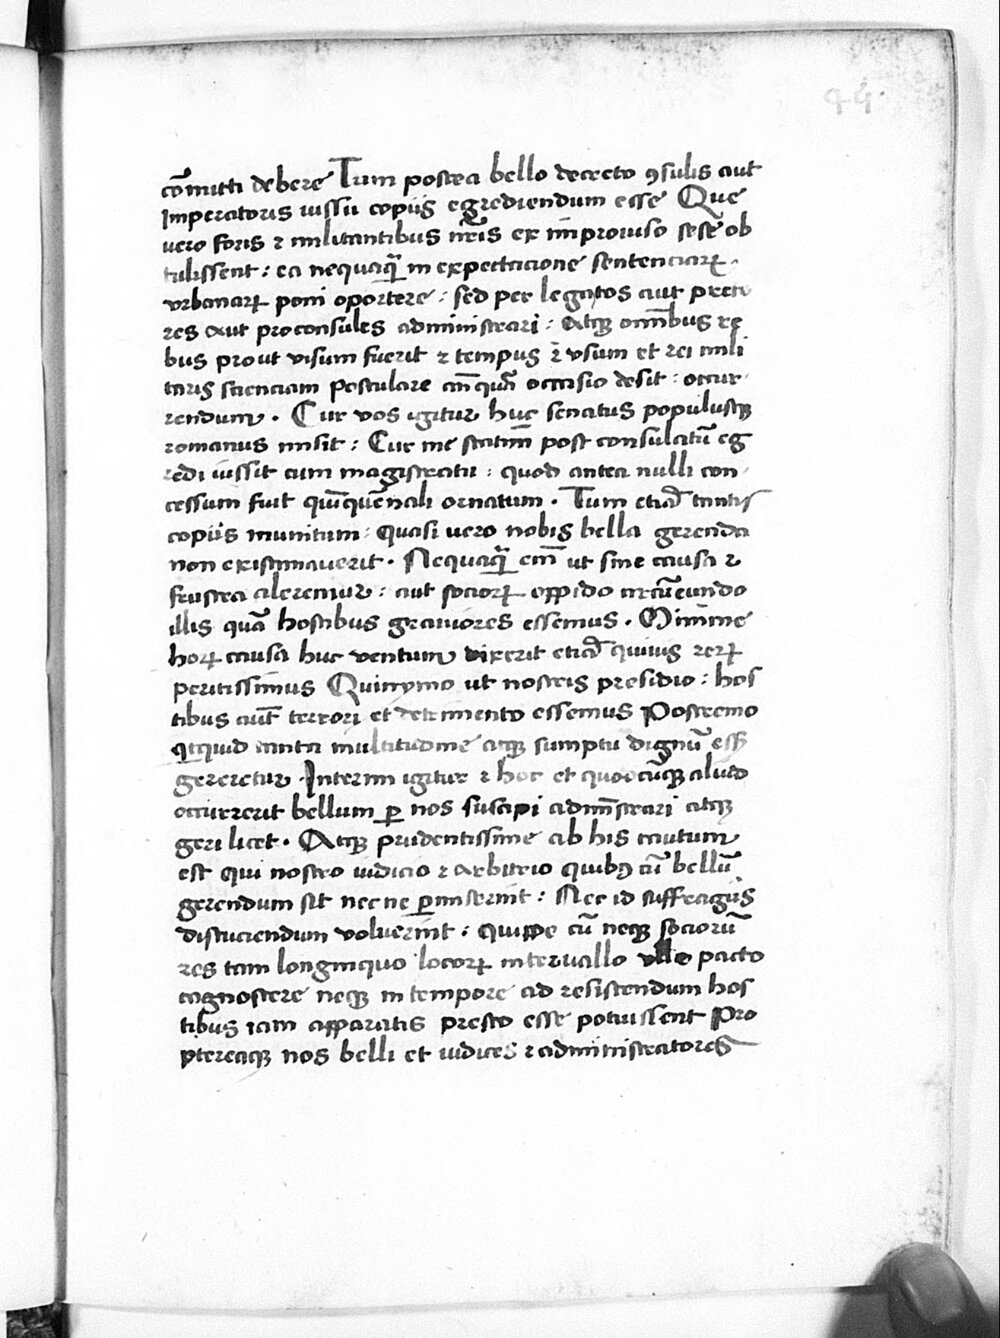 44
cōmitti debere Tum postea bello decreto ꝯsulis aut
imperatoris iussu copijs egrediendum esse Que
vero foris ⁊ militantibus nr̄is ex improuiso sese ob
tulissent : ea nequaq̄ in expectacione sentenciaꝝ .
vrbanaꝝ poni oportere : sed per legatos aut preto
res aut proconsules administrari : Atqꝫ om̄ibus re
bus prout visum fuerit ⁊ tempus ⁊ vsum et rei mili
taris scienciam postulare occasio desit : occur
rendum . Cur vos igitur huc senatus populusqꝫ
romanus misit : Cur me statim post consulatū eg
redi iussit cum magistratu : quod antea nulli con
cessum fuit quīquēnali ornatum . Tum etiā tantis
copijs munitum : quasi vero nobis bella gerenda
non existimauerit . Nequaq̄ em̄ ut sine causa ⁊
frustra aleremur : aut socioꝝ oppido circūeundo
illis quā hostibus grauiores essemus . Minime
hoꝝ causa huc ventum dixerit etiā quiuis reꝝ
peritissimus Quinymo ut nostris presidio : hos
tibus aūt terrori et detrimento essemus Postremo
quid tanta multitudine atqꝫ sumptu dignū
gereretur . Interim igitur ⁊ hoc et quodcūqꝫ aliud
occurrerit bellum ꝑ nos suscipi adm̄istrari atqꝫ
geri licet . Atqꝫ prudentissime ab his cautum
est qui nostro iudicio ⁊ arbitrio quibꝰ cū bellū
gerendum sit necne ꝑmiserint : Nec id suffragijs
discuciendum voluerint . quippe cū neqꝫ sociorū
res tam longinquo locoꝝ interuallo vllo pacto
cognoscere neqꝫ in tempore ad resistendum hos
tibus iam apparatis presto esse potuissent Pro
ptereaqꝫ nos belli et iudices ⁊ administratores